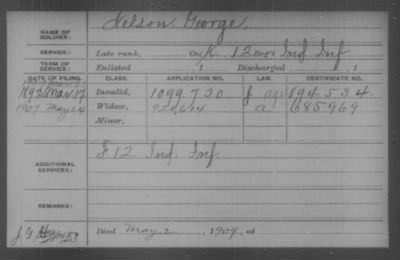 NAME OF SOLDIER: Nelson George
SERVICE: Late rank, Co. K, 12 Reg't Ind Inf
TERM OF SERVICE: Enlisted , 1 Discharged , 1
DATE OF FILING. CLASS. APPLICATION NO. LAW. CERTIFICATE NO.
1892 Mar. 17 Invalid, 1099,730 894,534.
1909 May 24 Widow, 685,969
Minor,
ADDITIONAL SERVICES: F 12 Ind. Inf.
REMARKS:
Died May 2 1909, at